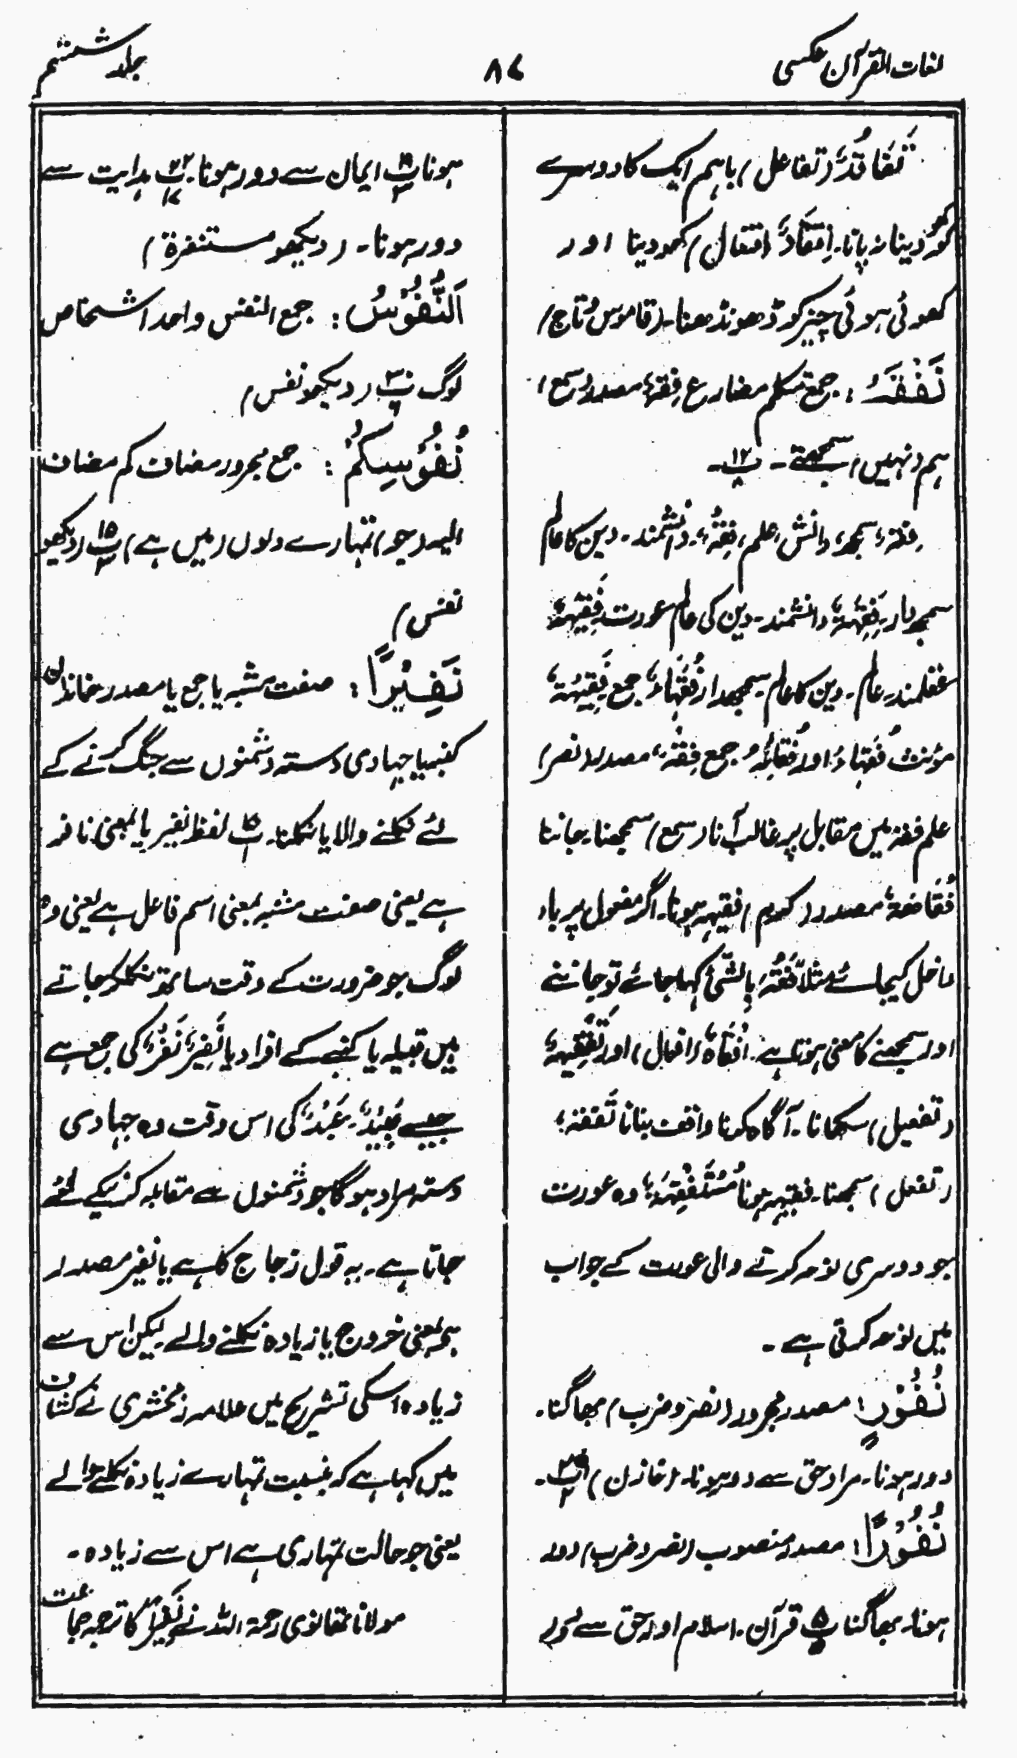 لغات القرآن عکسی
۸۷
جلد ششم
تَفَاقُدٌ (تفاعل) باہم ایک کا دوسرے
کو دینا نہ پانا۔ اِفْتِقَادٌ (افتعال) کھو دینا اور
کھوئی ہوئی چیز کو ڈھونڈھنا۔ (قاموس و تاج)
نَفْقَهُ : جمع متکلم مضارع فِقْهٌ مصدر (سمع)
ہم (نہیں) سمجھتے۔ پ۱۲
فِقْهٌ، سمجھ، دانش، علم، فِقْهٌ، دانشمند۔ دین کا عالم
سمجھدار۔ فَقِهَةٌ، دانشمند۔ دین کی عالم عورت۔ فَقِيْهٌ
عقلمند۔ عالم۔ دین کا عالم۔ سمجھدار فُقَهَاءُ جمع فَقِيْهَةٌ
مؤنث فُقَهَاءُ اور فَقَائِهُ جمع فِقْهٌ، مصدر (نصر)
علم فقہ میں مقابل پر غالب آنا (سمع) سمجھنا۔ جاننا
فُقَاهَةٌ مصدر (کرم) فقیہہ ہونا۔ اگر مفعول پر باء
داخل کیجائے مثلاً فَقُهَ بِالشَّئِ کہا جائے تو جاننے
اور سمجھنے کا معنی ہوتا ہے۔ اِفْقَاهٌ (افعال) اور تَفْقِيْهٌ
(تفعیل) سکھانا۔ آگاہ کرنا واقف بنانا تَفَقُّهٌ
(تفعل) سمجھنا۔ فقیہہ ہونا مُسْتَفْقِهَةٌ وہ عورت
جو دوسری نوحہ کرنے والی عورت کے جواب
میں نوحہ کرتی ہے۔
نُفُوْرٍ: مصدر مجرور (نصر و ضرب) بھاگنا۔
دور ہونا۔ مراد حق سے دور ہونا۔ (خازن) پ۲۹
نُفُوْرًا: مصدر منصوب (نصر و ضرب) دور
ہونا۔ بھاگنا پ۱۵ قرآن۔ اسلام اور حق سے دور
ہونا پ۱۹ ایمان سے دور ہونا۔ پ۲۲ ہدایت سے
دور ہونا۔ (دیکھو مستنفرۃ)
اَلنُّفُوْسُ : جمع النفس واحد اشخاص
لوگ پ۳۰ (دیکھو نفس)
نُفُوْسِكُمْ : جمع مجرور مضاف کم مضاف
الیہ (جو) تمہارے دلوں (میں ہے) پ۱۵ (دیکھو
نفس)
نَفِيْرًا : صفت مشبہ یا جمع یا مصدر۔ خاندان
کنبہ یا جہادی دستہ دشمنوں سے جنگ کرنے کے
لئے نکلنے والا یا نکلنا۔ پ۱۵ لفظ نفیر یا بمعنی نافر
ہے یعنی صفت مشبہ بمعنی اسم فاعل ہے یعنی وہ
لوگ جو ضرورت کے وقت ساتھ نکلکر جاتے
ہیں قبیلہ یا کنبے کے افراد یا نَفِيْرٌ نَفْرٌ کی جمع ہے
جیسے عَبِيْدٌ، عَبْدٌ کی اس وقت وہ جہادی
دستہ مراد ہوگا جو دشمنوں سے مقابلہ کرنیکے لئے
جاتا ہے۔ یہ قول زجاج کا ہے یا نفیر مصدر
ہے بمعنی خروج یا زیادہ نکلنے والے لیکن اس سے
زیادہ اسکی تشریح میں علامہ زمخشری نے کشاف
میں کہا ہے کہ بنسبت تمہارے زیادہ نکلنے والے
یعنی جو حالت تمہاری ہے اس سے زیادہ۔
مولانا تھانوی رحمۃ اللہ نے نَفِيْرًا کا ترجمہ جماعت